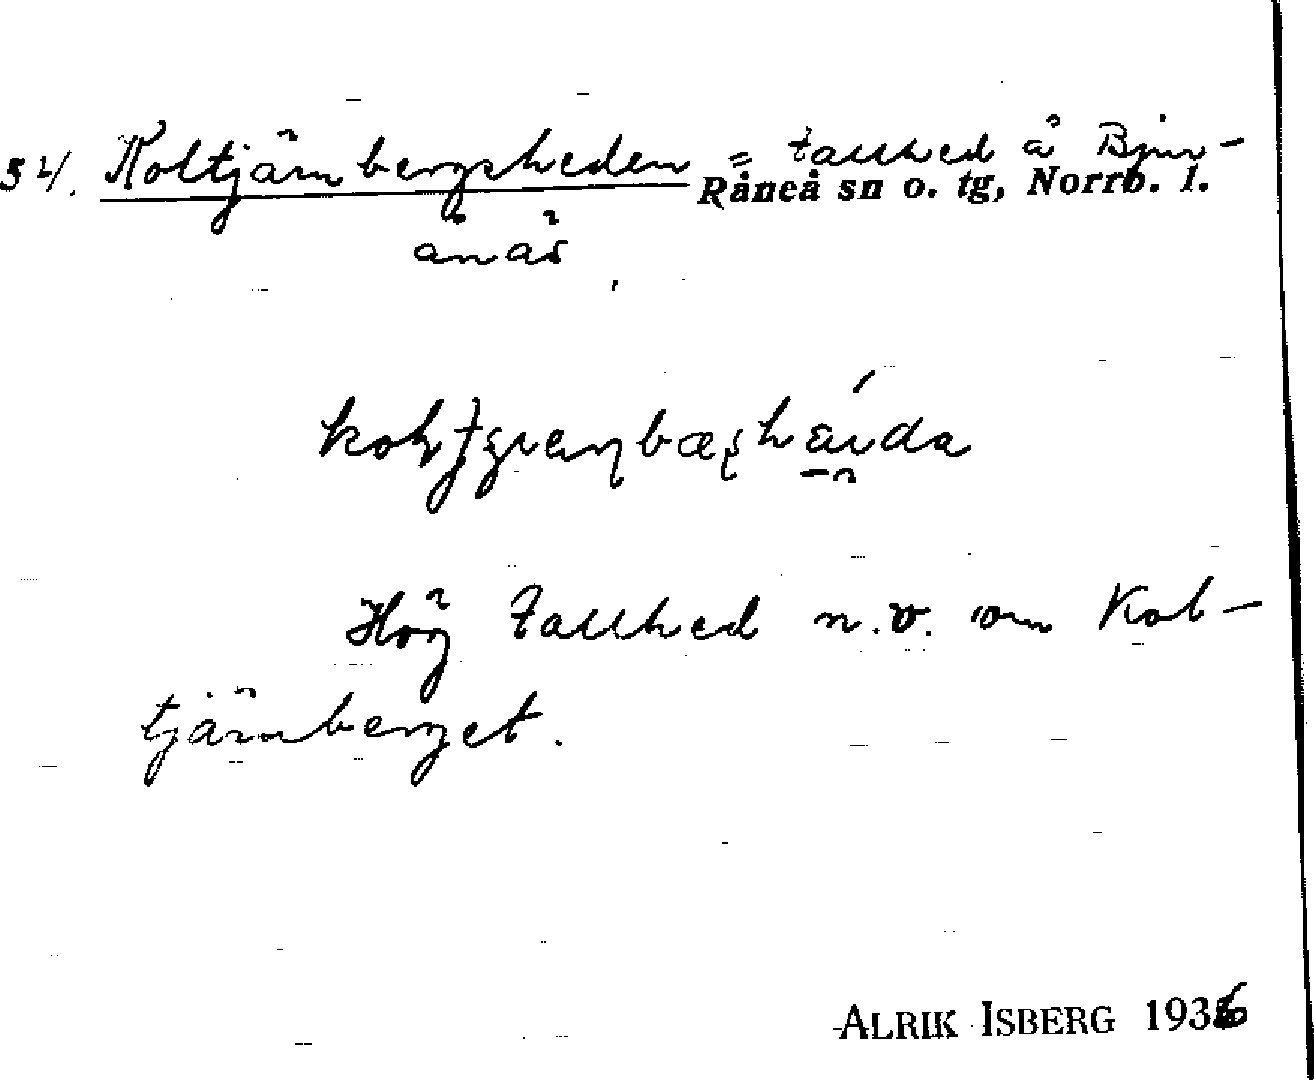 54. Koltjärnbergsheden = tallhed å Bjur-
Råneå sn o. tg, Norrb. l.
ånäs
Hög tallhed n.v. om Kol-
tjärnberget.
ALRIK ISBERG 1936